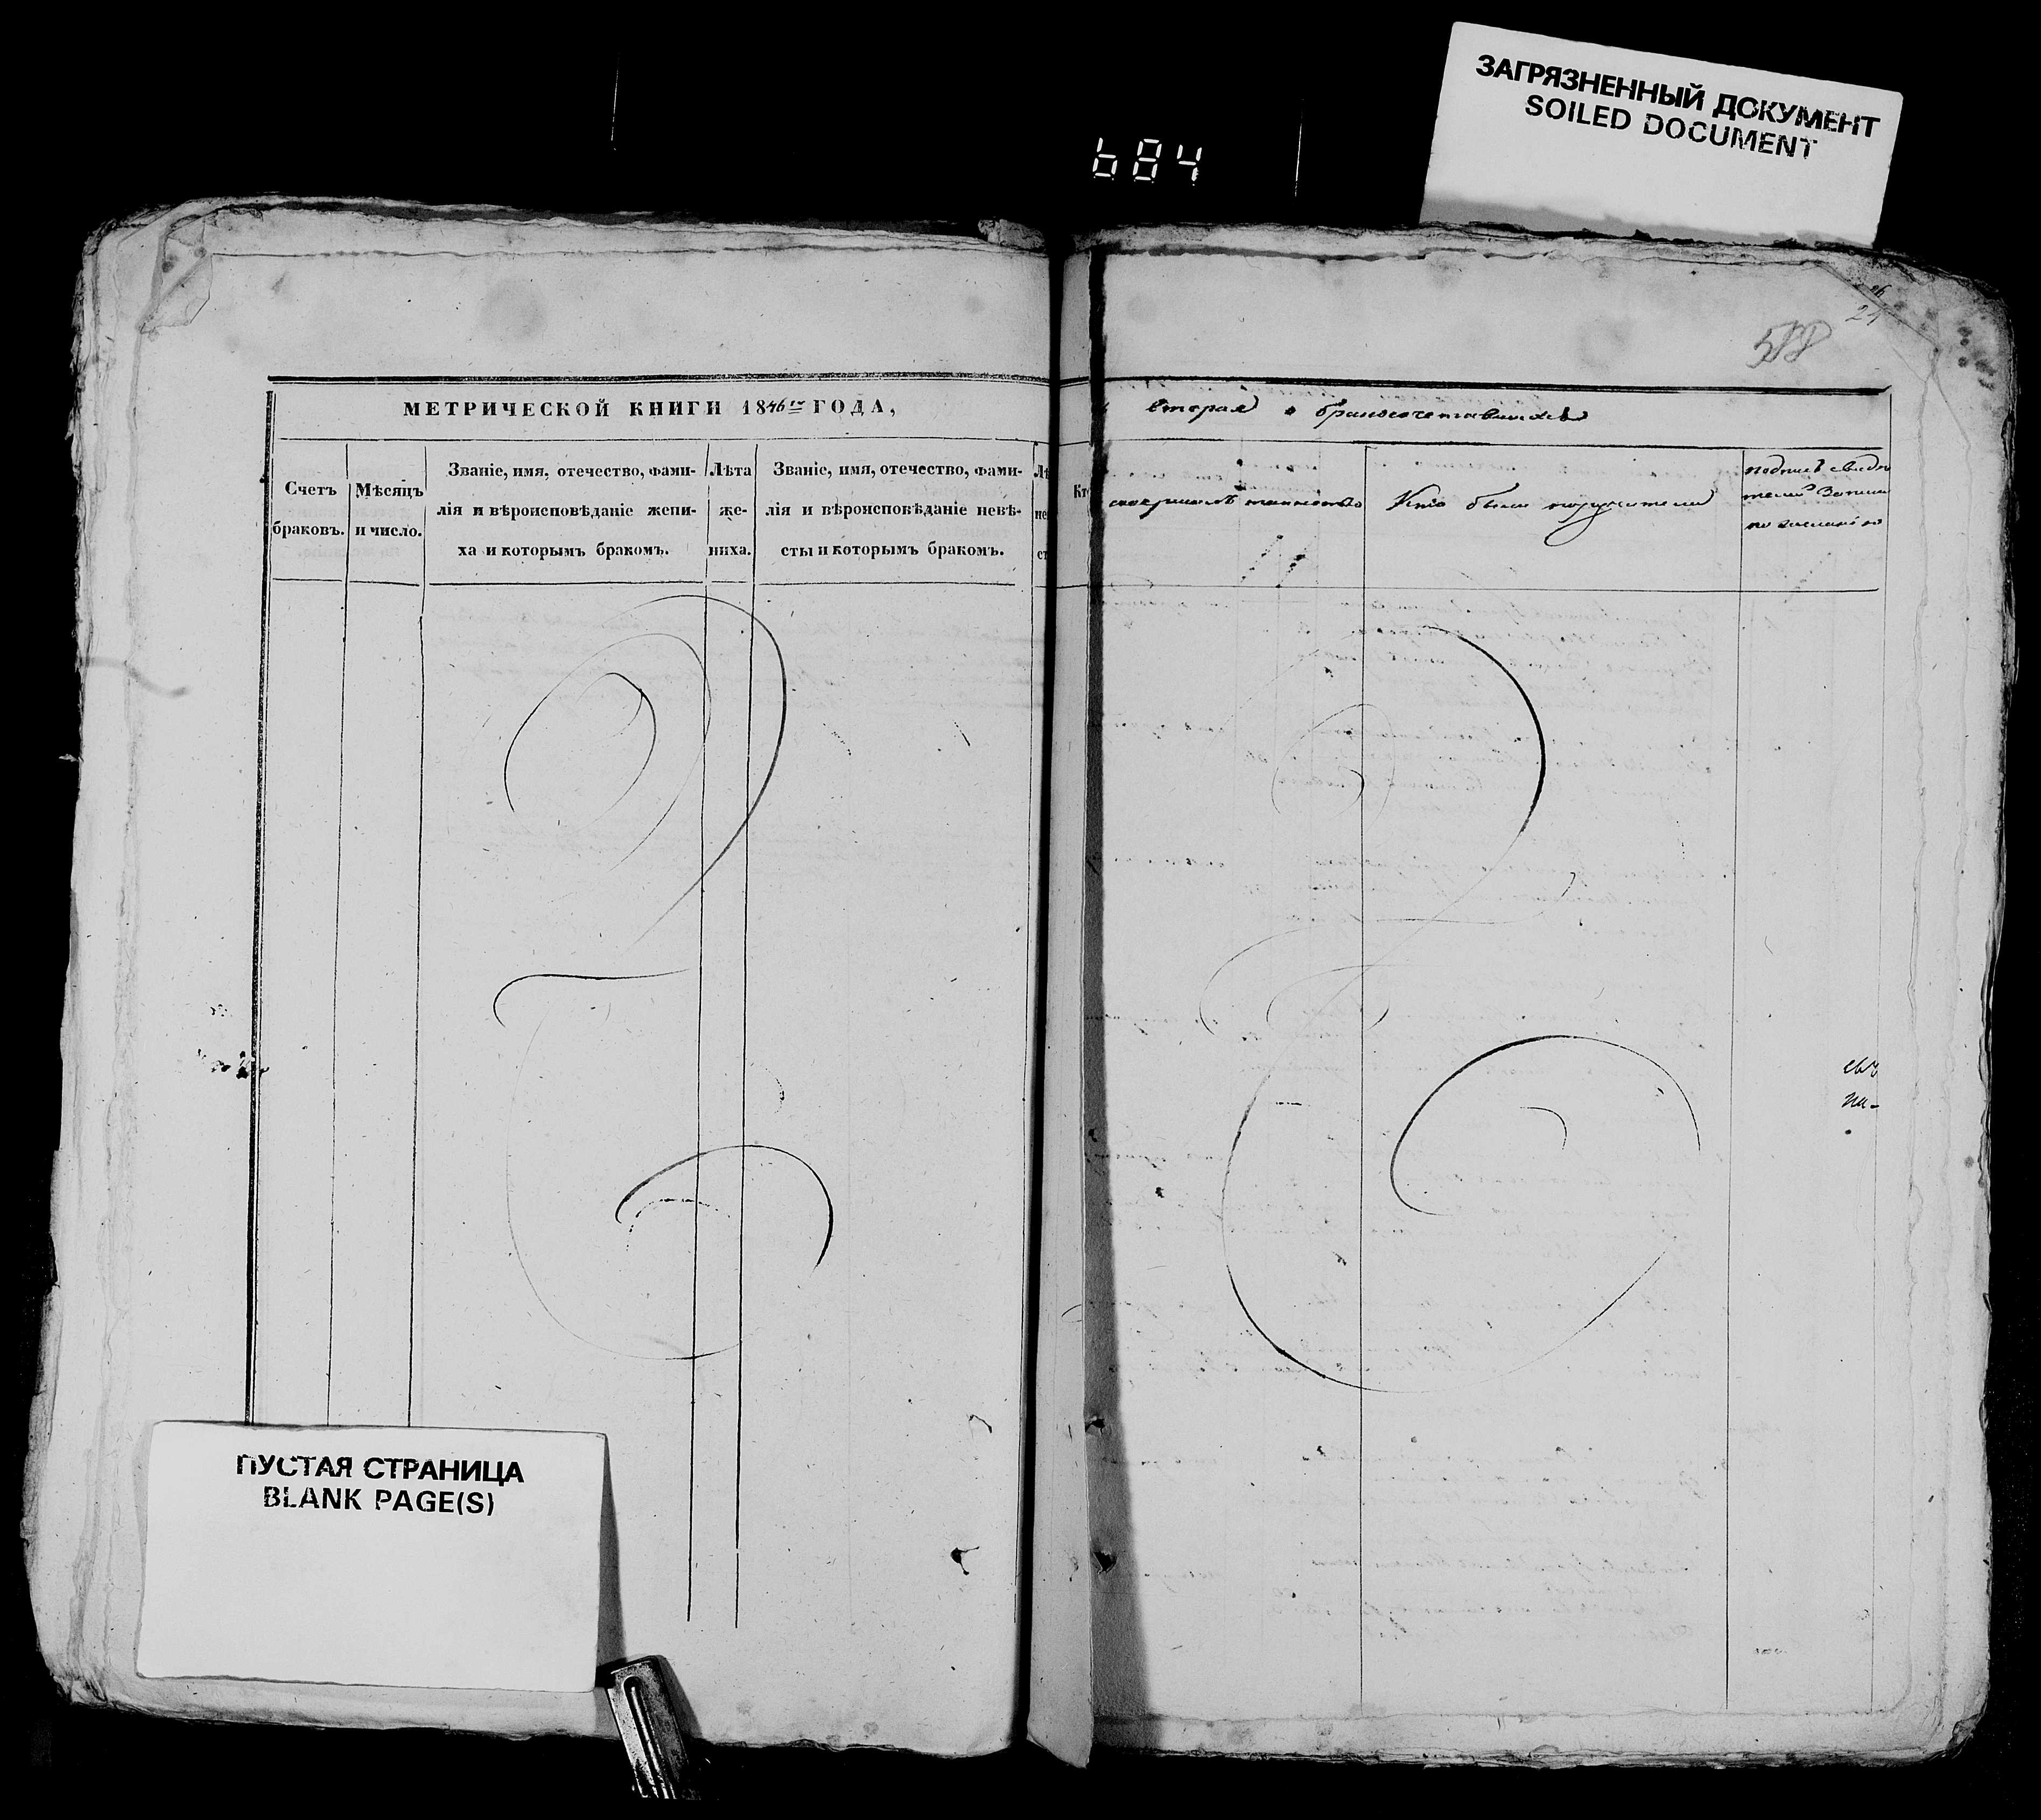 ЗАГРЯЗНЕННЫЙ ДОКУМЕНТ
SOILED DOCUMENT
684
24
588
МЕТРИЧЕСКОЙ КНИГИ 1846го ГОДА,
вторая о бракосочетавшихся
Счетъ
браковъ.
Мѣсяцъ
и число.
Званіе, имя, отечество, фами-
лія и вѣроисповѣданіе жени-
ха и которымъ бракомъ.
Лѣта
же-
ниха.
Званіе, имя, отечество, фами-
лія и вѣроисповѣданіе невѣ-
сты и которымъ бракомъ.
Лѣ
не
ст
Кто
совершалъ таинство
Кто были поручители
подпись свидѣ
телей записи
по желанію
ПУСТАЯ СТРАНИЦА
BLANK PAGE(S)